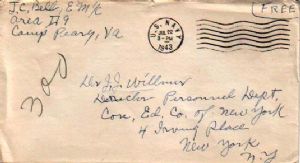 J.C. Bell, E.M. 1/c
Area A9
Camp Peary, Va
U.S. NAVY
JUL 22
3-PM
1943
FREE
300
Dr J.J. Willmer
Director Personnel Dept,
Con. Ed. Co. of New York
4 Irving Place
New York
N.Y